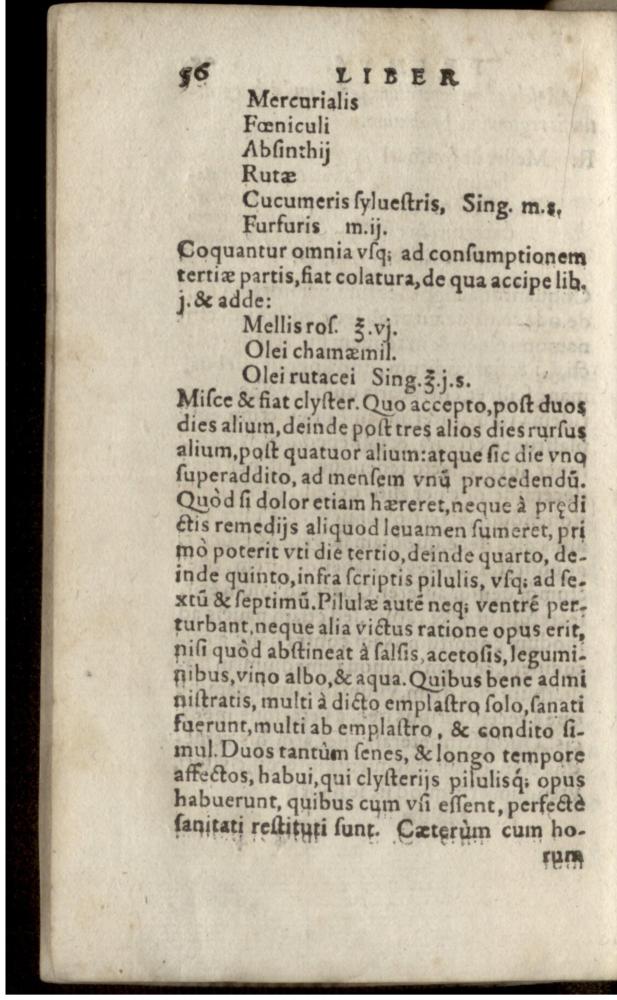 56 LIBER
Mercurialis
Fœniculi
Abſinthij
Rutæ
Cucumeris ſylueſtris, Sing. m.s.
Furfuris m.ij.
Coquantur omnia vſq; ad conſumptionem
tertiæ partis,fiat colatura,de qua accipe lib.
j.& adde:
Mellis roſ. ℥.vj.
Olei chamæmil.
Olei rutacei Sing.℥.j.s.
Miſce & fiat clyſter. Quo accepto,poſt duos
dies alium,deinde poſt tres alios dies rurſus
alium,poſt quatuor alium:atque ſic die vno
ſuperaddito, ad menſem vnū procedendū.
Quòd ſi dolor etiam hæreret,neque à prędi
ctis remedijs aliquod leuamen ſumeret, pri
mò poterit vti die tertio,deinde quarto, de-
inde quinto,infra ſcriptis pilulis, vſq; ad ſe-
xtū & ſeptimū.Pilulæ auté neq; ventré per-
turbant,neque alia victus ratione opus erit,
niſi quòd abſtineat à ſalſis,acetoſis,legumi-
nibus,vino albo,& aqua.Quibus bene admi
niſtratis, multi à dicto emplaſtro ſolo,ſanati
fuerunt,multi ab emplaſtro, & condito ſi-
mul.Duos tantùm ſenes, & longo tempore
affectos, habui,qui clyſterijs piſulisq́; opus
habuerunt, quibus cum vſi eſſent, perfectè
ſanitati reſtituti ſunt. Cæterùm cum ho-
rum